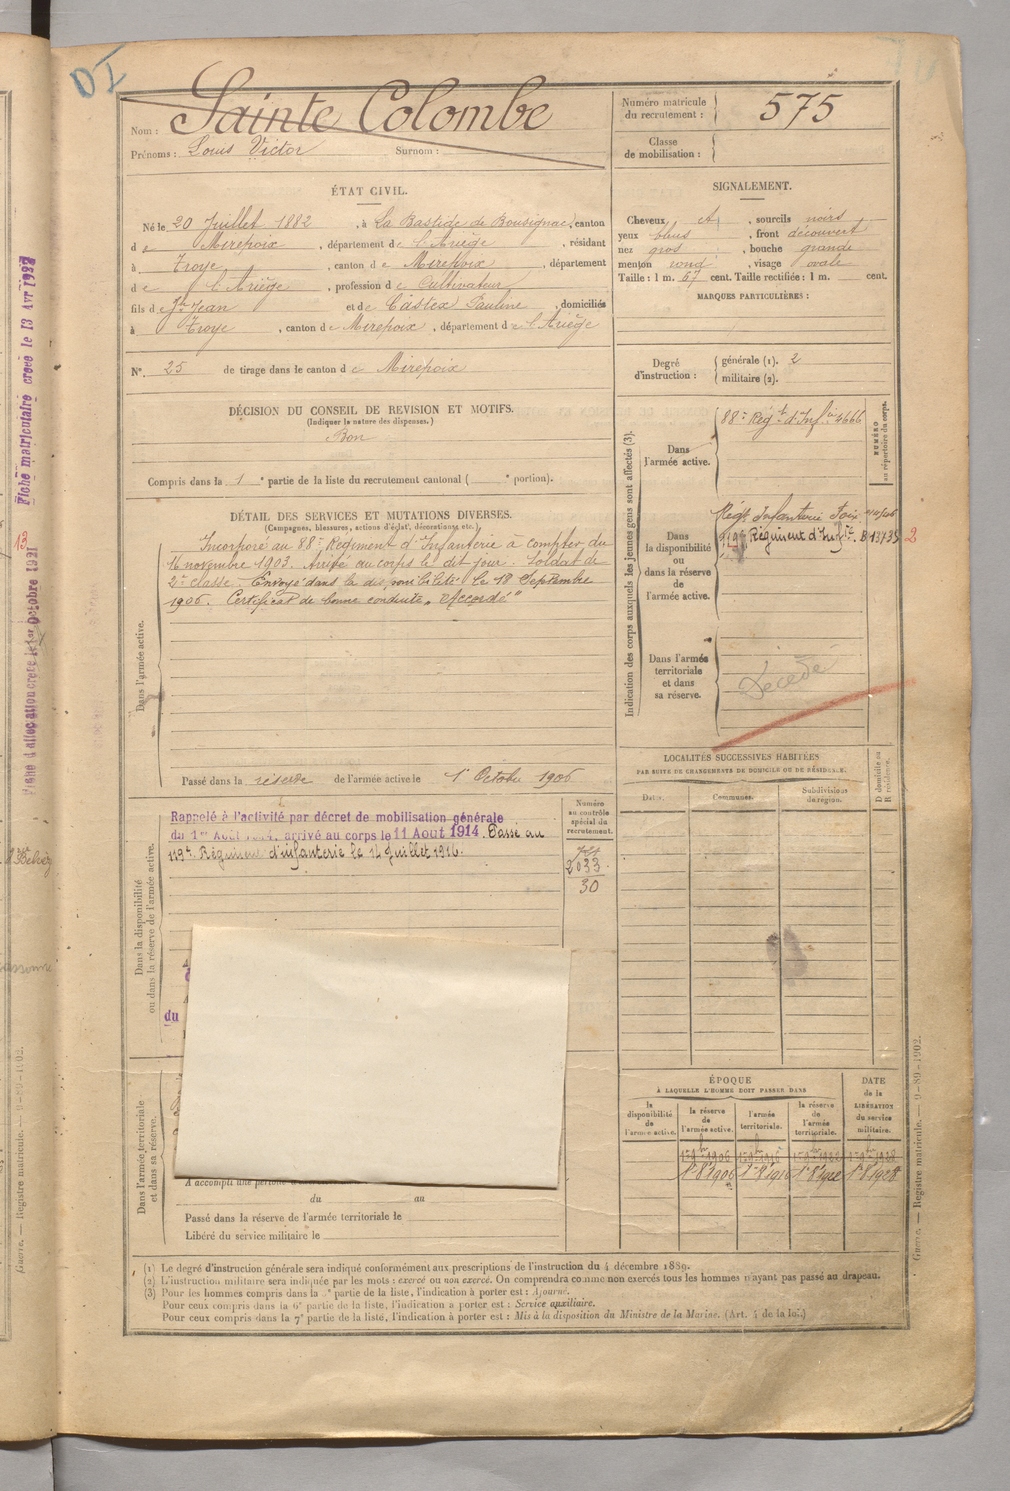 Sainte Colombe
Nom :
Prénoms : Louis Victor Surnom :
Numéro matricule du recrutement : 575
Classe de mobilisation :
ÉTAT CIVIL.
Né le 20 Juillet 1882, à La Bastide de Bousignac, canton
d e Mirepoix, département de l'Ariège, résidant
à Troye, canton d e Mirepoix, département
d e l'Ariège, profession de Cultivateur
fils de Jean et de Castex Pauline, domiciliés
à Troye, canton de Mirepoix, département de l'Ariège
N°. 25 de tirage dans le canton d e Mirepoix
DÉCISION DU CONSEIL DE REVISION ET MOTIFS.
(Indiquer la nature des dispenses.)
Bon
Compris dans la 1e partie de la liste du recrutement cantonal ( e portion).
DÉTAIL DES SERVICES ET MUTATIONS DIVERSES.
(Campagnes, blessures, actions d'éclat, décorations, etc.)
Dans l'armée active.
Incorporé au 88e Régiment d'Infanterie à compter du
16 novembre 1903. Arrivé au corps le dit jour. Soldat de
2e classe. Envoyé dans la disponibilité le 18 Septembre
1906. Certificat de bonne conduite "Accordé"
Passé dans la réserve de l'armée active le 1er Octobre 1906
Dans la disponibilité
ou dans la réserve de l'armée active.
Rappelé à l'activité par décret de mobilisation générale
du 1er Août 1914, arrivé au corps le 11 Août 1914. Passé au
119e Régiment d'infanterie le 14 Juillet 1916.
du
Numéro
au contrôle
spécial du
recrutement.
2033
30
Dans l'armée territoriale
et dans sa réserve.
A accompli une
du au
Passé dans la réserve de l'armée territoriale le
Libéré du service militaire le
SIGNALEMENT.
Cheveux, sourcils noirs
yeux bleus, front découvert
nez gros, bouche grande
menton rond, visage ovale
Taille : 1 m. 67 cent. Taille rectifiée : 1 m. cent.
MARQUES PARTICULIÈRES :
Degré d'instruction :
générale (1). 2
militaire (2).
Indication des corps auxquels les jeunes gens sont affectés (3).
NUMÉRO
au répertoire du corps.
Dans
l'armée active.
88e Régt d'Infie 4666
Dans
la disponibilité
ou
dans la réserve
de
l'armée active.
Régt Infanterie Foix
119e Régiment d'Infie. B13735 2
Dans l'armée
territoriale
et dans
sa réserve.
Décédé
LOCALITÉS SUCCESSIVES HABITÉES
PAR SUITE DE CHANGEMENTS DE DOMICILE OU DE RÉSIDENCE.
Dates. Communes. Subdivisions de région. D domicile ou R résidence.
ÉPOQUE
À LAQUELLE L'HOMME DOIT PASSER DANS
DATE
de la
LIBÉRATION
du service
militaire.
la disponibilité de l'armée active.
la réserve de l'armée active.
l'armée territoriale.
la réserve de l'armée territoriale.
(1) Le degré d'instruction générale sera indiqué conformément aux prescriptions de l'instruction du 4 décembre 1889.
(2) L'instruction militaire sera indiquée par les mots : exercé ou non exercé. On comprendra comme non exercés tous les hommes n'ayant pas passé au drapeau.
(3) Pour les hommes compris dans la 5e partie de la liste, l'indication à porter est : Ajourné.
Pour ceux compris dans la 6e partie de la liste, l'indication à porter est : Service auxiliaire.
Pour ceux compris dans la 7e partie de la liste, l'indication à porter est : Mis à la disposition du Ministre de la Marine. (Art. 4 de la loi.)
Fiche matriculaire créée le 13 Avr 1932
Fiche d'allocation créée le 1er Octobre 1921
Guerre. — Registre matricule. — 9-89-1902.
Guerre. — Registre matricule. — 9-89-1902.